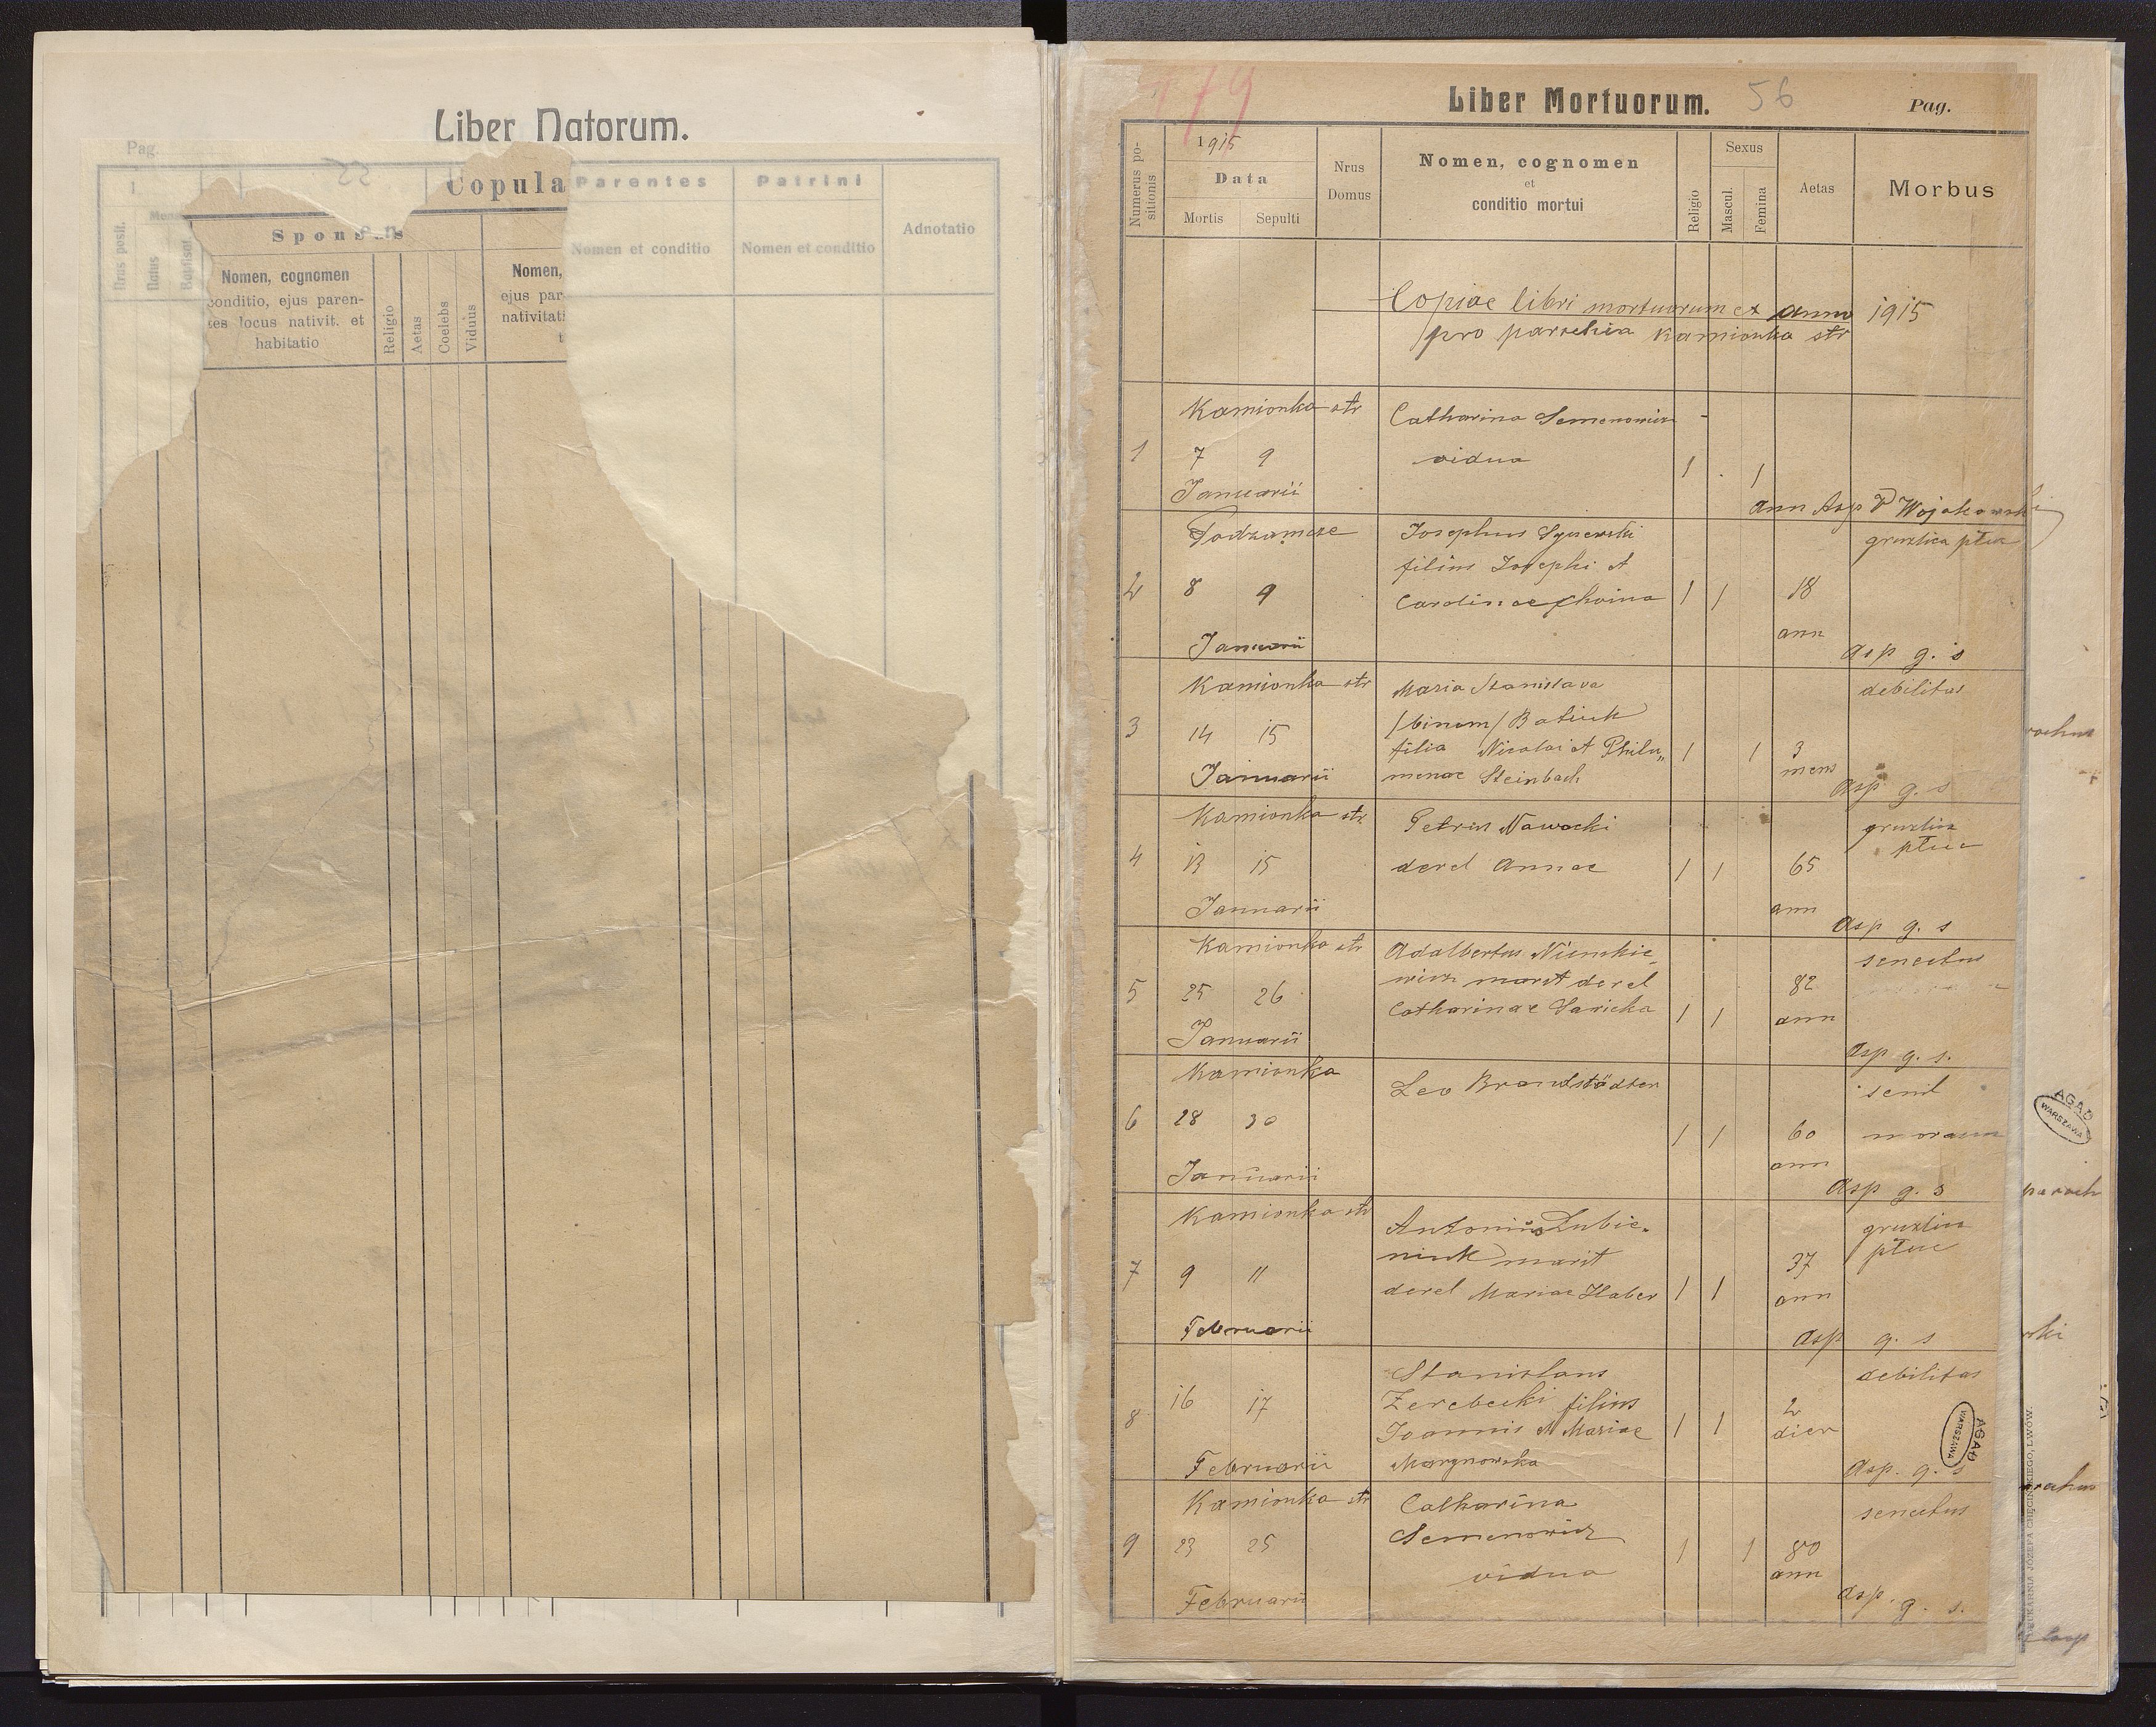 Liber Natorum.
Pag.
1
Copula
Parentes
Patrini
Nrus posit.
Natus
Sponsus
Nomen et conditio
Nomen et conditio
Adnotatio
Nomen, cognomen
conditio, ejus paren-
tes locus nativit. et
habitatio
Religio
Aetas
Coelebs
Viduus
Nomen,
ejus par
nativitati
179
Liber Mortuorum.
56
Pag.
Numerus po-
sitionis
1915
Data
Mortis
Sepulti
Nrus
Domus
Nomen, cognomen
et
conditio mortui
Religio
Sexus
Mascul.
Femina
Aetas
Morbus
Copiae libri mortuorum ex anno 1915
pro parochia Kamionka str
Kamionka str
Catharina Semenowicz
1 7 9 vidua 1 1
Januarii
ann Asp P Wojakowski
Podzamcze Josephus
gruzlica płuc
filius Josephi et
2 8 9 Carolinae 1 1 18
Januarii ann
Asp g. s
Kamionka str Maria Stanislava debilitas
/binom/ Batiuk
3 14 15 filia Nicolai et Philo„ 1 1 3
Januarii menae Steinbach mens
Asp g. s
Kamionka str Petrus Nawocki gruzlica
płuc
4 13 15 derel Annae 1 1 65
Januarii ann
Asp g. s
Kamionka str Adalbertus senectus
marit derel 82
5 25 26 Catharinae Sawicka 1 1 ann
Januarii
Asp g. s.
Kamionka Leo Brandstädter senil
6 28 30 1 1 60
Januarii ann
Asp g. s
Kamionka str Antonius Lubie-
niuk marit gruzlica
płuc
7 9 11 derel Mariae Haber 1 1 37
ann
Februarii
Asp g. s
Stanislaus debilitas
8 16 17 Zerebecki filius 1 1 2
Joannis et Mariae dier
Februarii Marynowska
Asp. g. s
Kamionka str Catharina senectus
Semenowicz
9 23 25 vidua 1 1 80
ann
Februarii
Asp. g. s.
AGAD
WARSZAWA
AGAD
WARSZAWA
DRUKARNIA JÓZEFA CHĘCIŃSKIEGO, LWÓW.